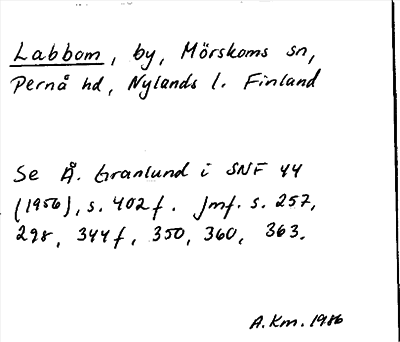 Labbom, by, Mörskoms sn,
Pernå hd, Nylands l. Finland
Se Å. Granlund i SNF 44
(1956), s. 402 f. Jmf. s. 257,
298, 344 f, 350, 360, 363.
A.Km. 1986